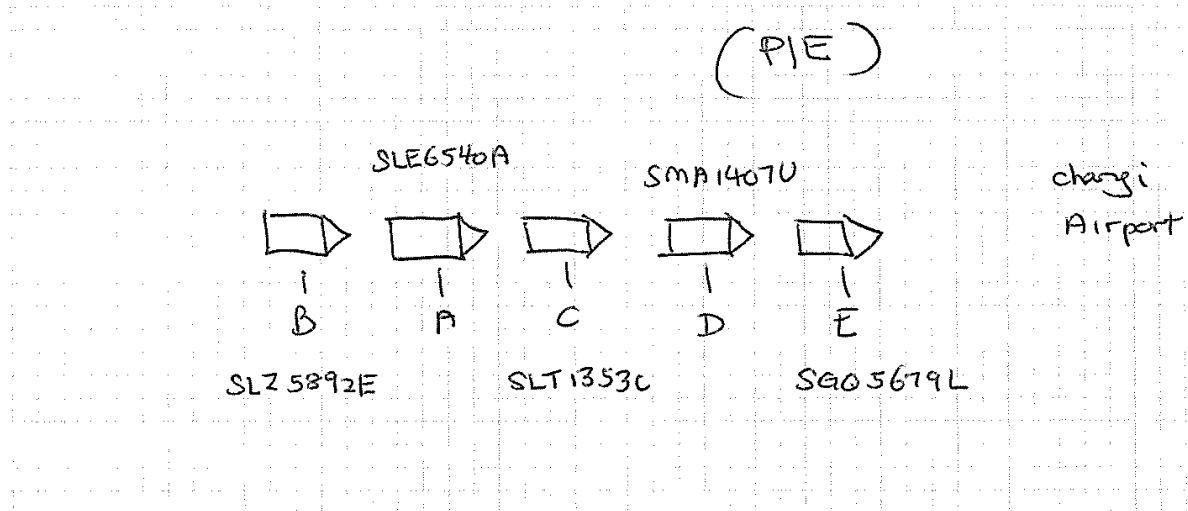 (PIE)
SLE6540A
SMA1407U
changi
Airport
B A C D E
SLZ5892E SLT1353C SGO5679L